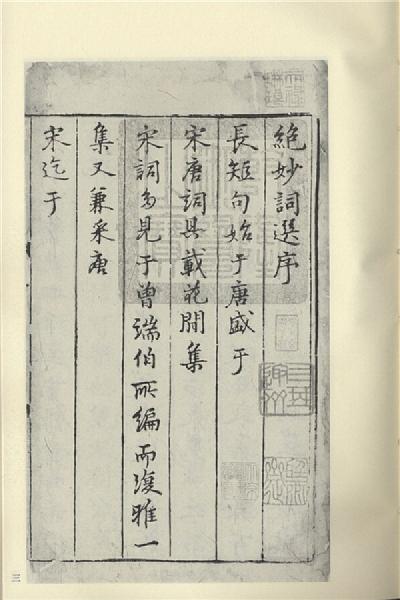 絕妙詞選序
長短句始于唐盛于
宋唐詞具載花間集
宋詞多見于曾端伯所編而復雅一
集又兼采唐
宋迄于
三